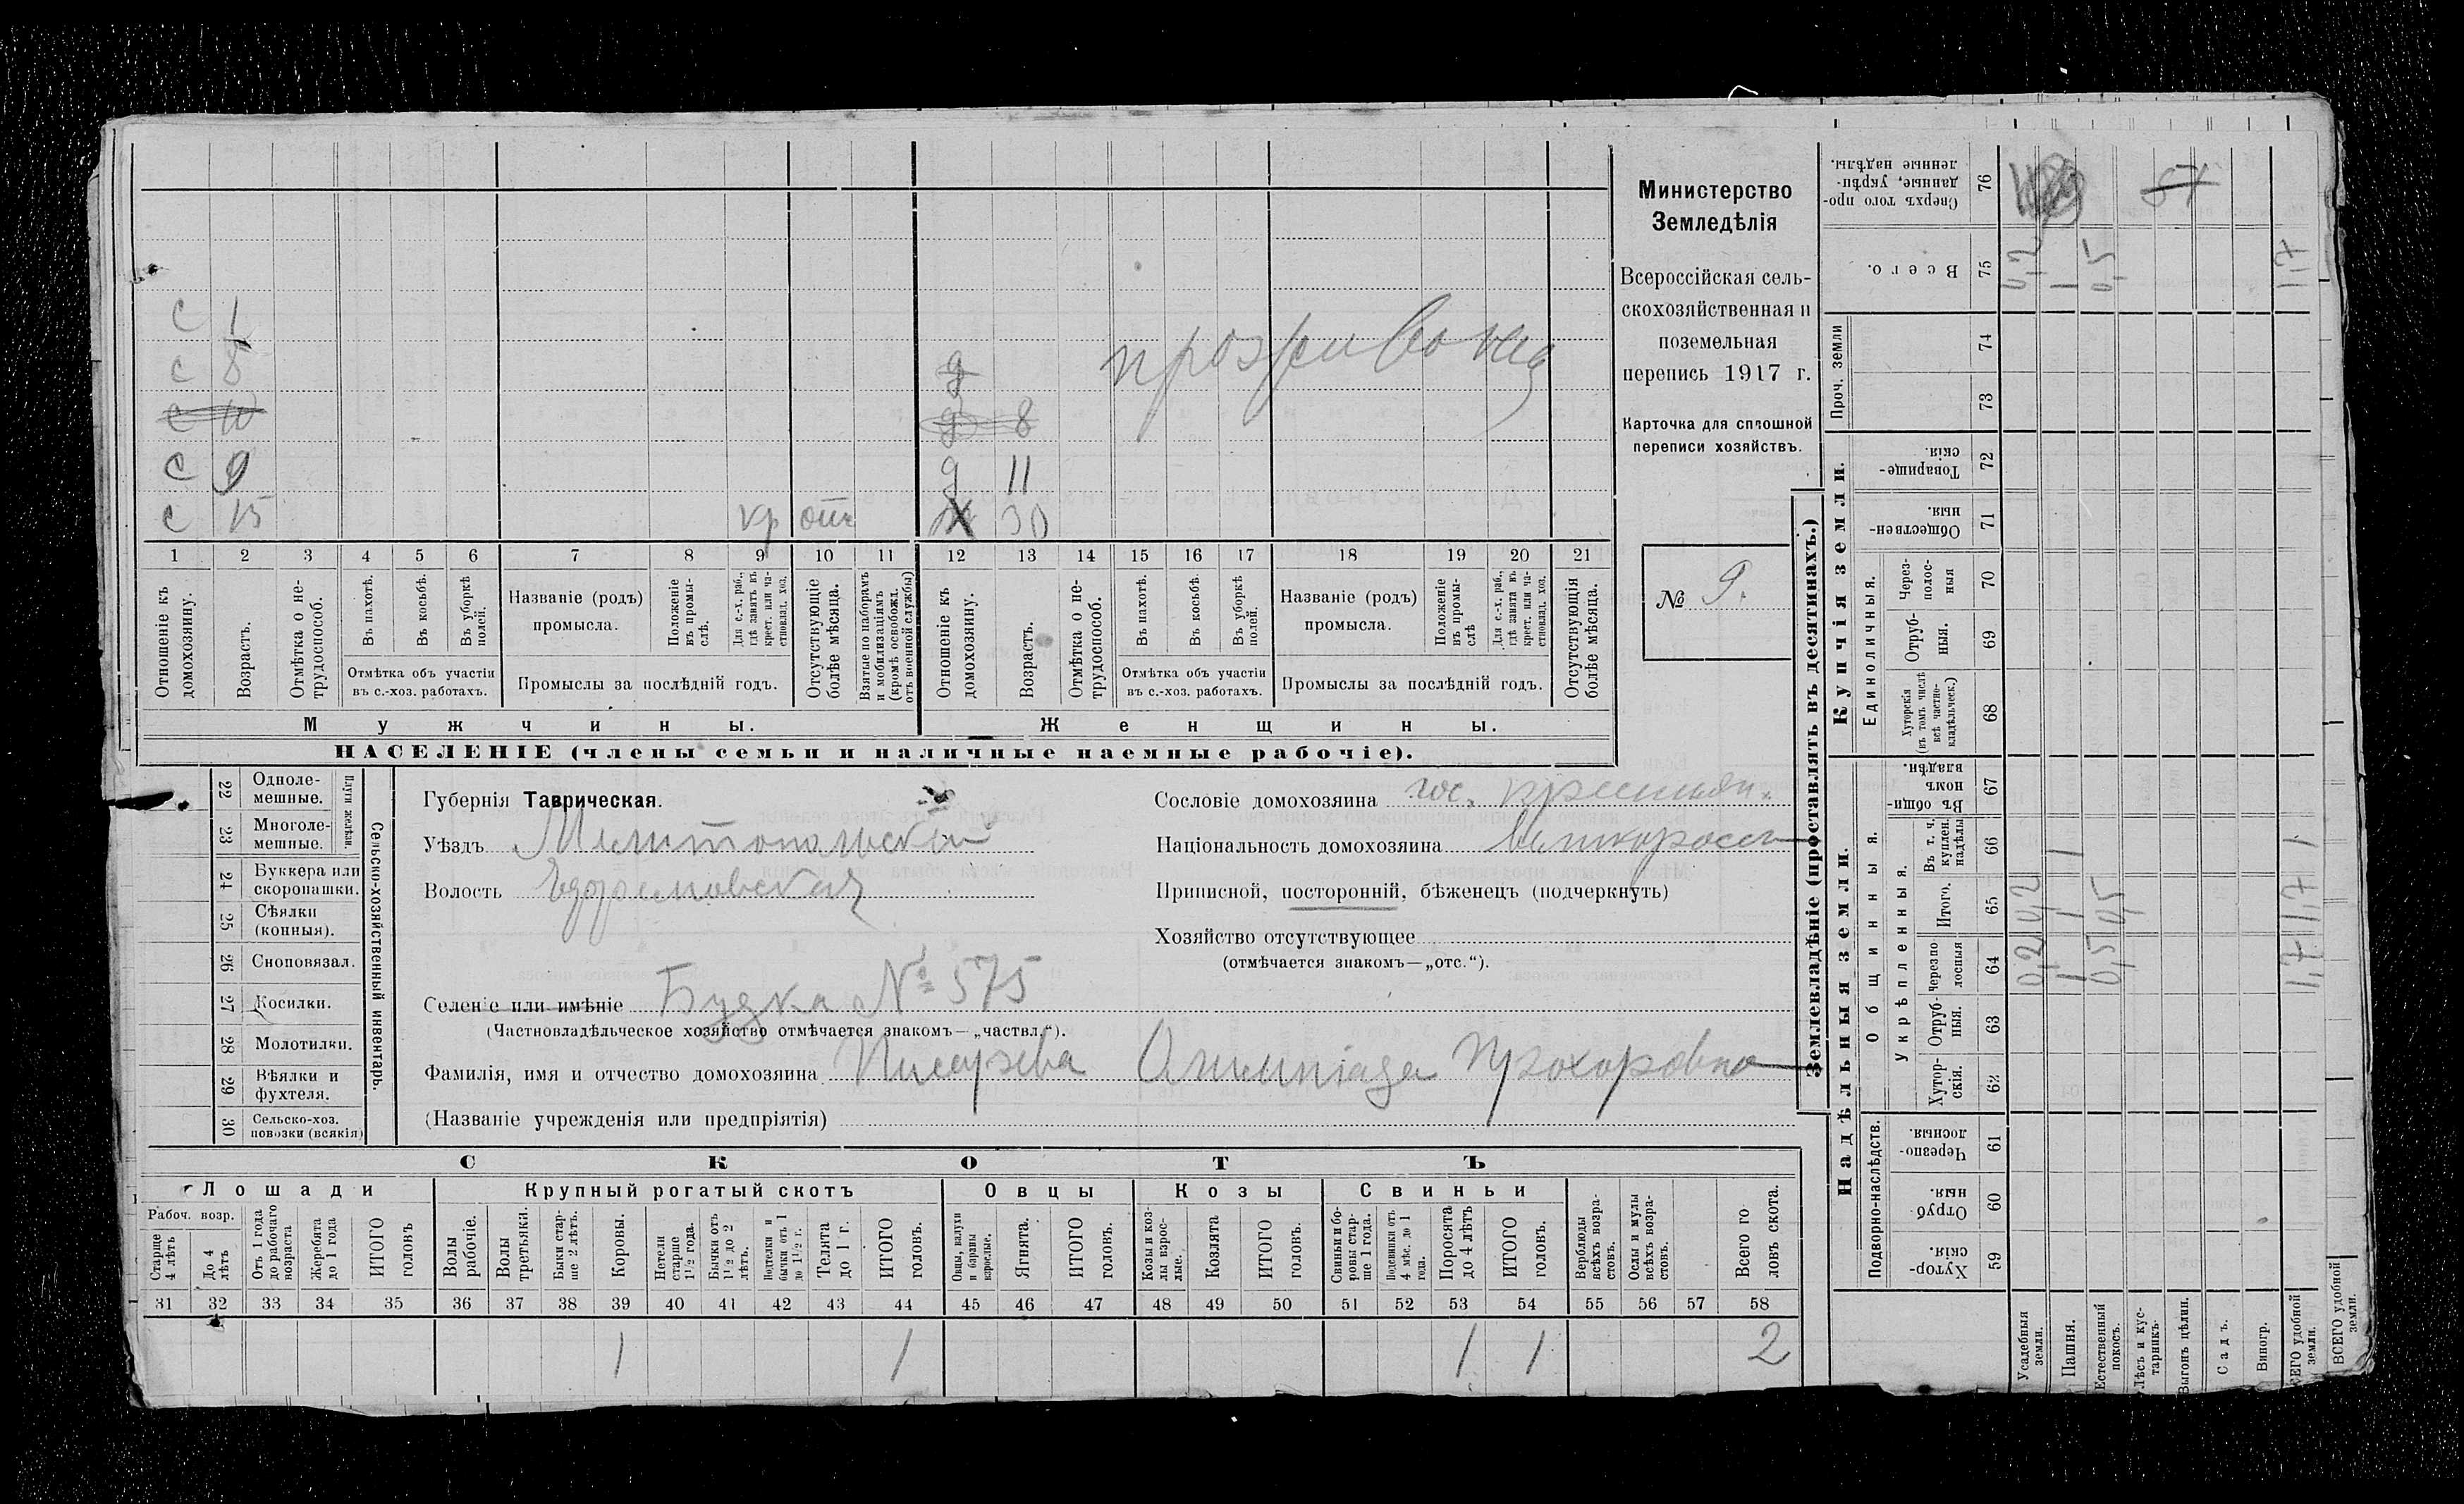 с 1
с 5
с 10
с 9
с 15 кр отс
д
д 8
д 11
Х 30
проживают
1 2 3 4 5 6 7 8 9 10 11 12 13 14 15 16 17 18 19 20 21
Отношеніе къ домохозяину.
Возрастъ.
Отмѣтка о не-
трудоспособ.
Въ пахотѣ.
Въ косьбѣ.
Въ уборкѣ
полей.
Отмѣтка объ участіи
въ с.-хоз. работахъ.
Названіе (родъ)
промысла.
Положеніе
въ промы-
слѣ.
Для с.-х. раб.,
гдѣ занятъ въ
крест. или ча-
стновлад. хоз.
Промыслы за послѣдній годъ.
Отсутствующіе
болѣе мѣсяца.
Взятые по наборамъ
и мобилизаціямъ
(кромѣ освобожд.
отъ военной службы)
Отношеніе къ
домохозяину.
Возрастъ.
Отмѣтка о не-
трудоспособ.
Въ пахотѣ.
Въ косьбѣ.
Въ уборкѣ
полей.
Отмѣтка объ участіи
въ с.-хоз. работахъ.
Названіе (родъ)
промысла.
Положеніе
въ промы-
слѣ
Для с.-х. раб.,
гдѣ занята въ
крест. или ча-
стновлад. хоз.
Промыслы за послѣдній годъ.
Отсутствующія
болѣе мѣсяца.
Мужчины.
Женщины.
НАСЕЛЕНІЕ (члены семьи и наличные наемные рабочіе).
Министерство
Земледѣлія
Всероссійская сель-
скохозяйственная и
поземельная
перепись 1917 г.
Карточка для сплошной
переписи хозяйствъ.
№ 9.
22 Одноле-
мешные.
23 Многоле-
мешные.
Плуги желѣзн.
24 Буккера или
скоропашки.
25 Сѣялки
(конныя).
26 Сноповязал.
27 Косилки.
28 Молотилки.
29 Вѣялки и
фухтеля.
30 Сельско-хоз.
повозки (всякія)
Сельско-хозяйственный инвентарь.
Губернія Таврическая.
Уѣздъ Мелитопольскій
Волость Ефремовская
Селеніе или имѣніе Будка № 575
(Частновладѣльческое хозяйство отмѣчается знакомъ—„частвл.“).
Фамилія, имя и отчество домохозяина Писарева Олимпіада Прохоровна
(Названіе учрежденія или предпріятія)
Сословіе домохозяина гос. крестьян.
Національность домохозяина великоросс
Приписной, посторонній, бѣженецъ (подчеркнуть)
Хозяйство отсутствующее
(отмѣчается знакомъ—„отс.“).
СКОТЪ
Лошади
Рабоч. возр.
Старше
4 лѣтъ
До 4
лѣтъ
Отъ 1 года
до рабочаго
возраста
Жеребята
до 1 года
ИТОГО
головъ
Крупный рогатый скотъ
Волы
рабочіе.
Волы
третьяки.
Быки стар-
ше 2 лѣтъ.
Коровы.
Нетели
старше
1½ года.
Бычки отъ
1½ до 2
лѣтъ.
Подтелки и
бычки отъ 1
до 1½ г.
Телята
до 1 г.
ИТОГО
головъ.
Овцы
Овцы, валухи
и бараны
взрослые.
Ягнята.
ИТОГО
головъ.
Козы
Козы и коз-
лы взрос-
лые.
Козлята
ИТОГО
головъ.
Свиньи
Свиньи и бо-
ровы стар-
ше 1 года.
Подсвинки отъ
4 мѣс. до 1
года.
Поросята
до 4 лѣтъ
ИТОГО
головъ.
Верблюды
всѣхъ возра-
стовъ.
Ослы и мулы
всѣхъ возра-
стовъ.
Всего го-
ловъ скота.
31 32 33 34 35 36 37 38 39 40 41 42 43 44 45 46 47 48 49 50 51 52 53 54 55 56 57 58
1 1 1 1 2
Землевладѣніе (проставлять въ десятинахъ.)
Надѣльныя земли.
Купчія земли.
Подворно-наслѣдств.
Общинныя.
Укрѣпленныя.
Единоличныя.
Проч. земли
59 Хутор-
скія.
60 Отруб-
ныя.
61 Черезпо-
лосныя.
62 Хутор-
скія.
63 Отруб-
ныя.
64 Черезпо-
лосныя 0,2 1 0,5 1,7
65 Итого. 0,2 1 0,5 1,7
66 Въ т. ч.
куплен.
надѣлы 1 1
67 Въ общи-
номъ
владѣн.
68 Хуторскія
(въ томъ числѣ
всѣ частно-
владѣльческ.)
69 Отруб-
ныя.
70 Через-
полос-
ныя
71 Обществен-
ныя.
72 Товарище-
скія.
73
74
75 Всего. 0,2 1 0,5 1,7
76 Сверхъ того про-
данные, укрѣп-
ленные надѣлы. 57
Усадебныя
земли.
Пашня.
Естественный
покосъ.
Лѣсъ и кус-
тарникъ.
Выгонъ цѣлин.
Садъ.
Виногр.
ВСЕГО удобной
земли.
ВСЕГО удобной
земли.